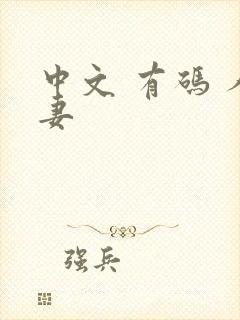 中文 有碼
妻
强兵